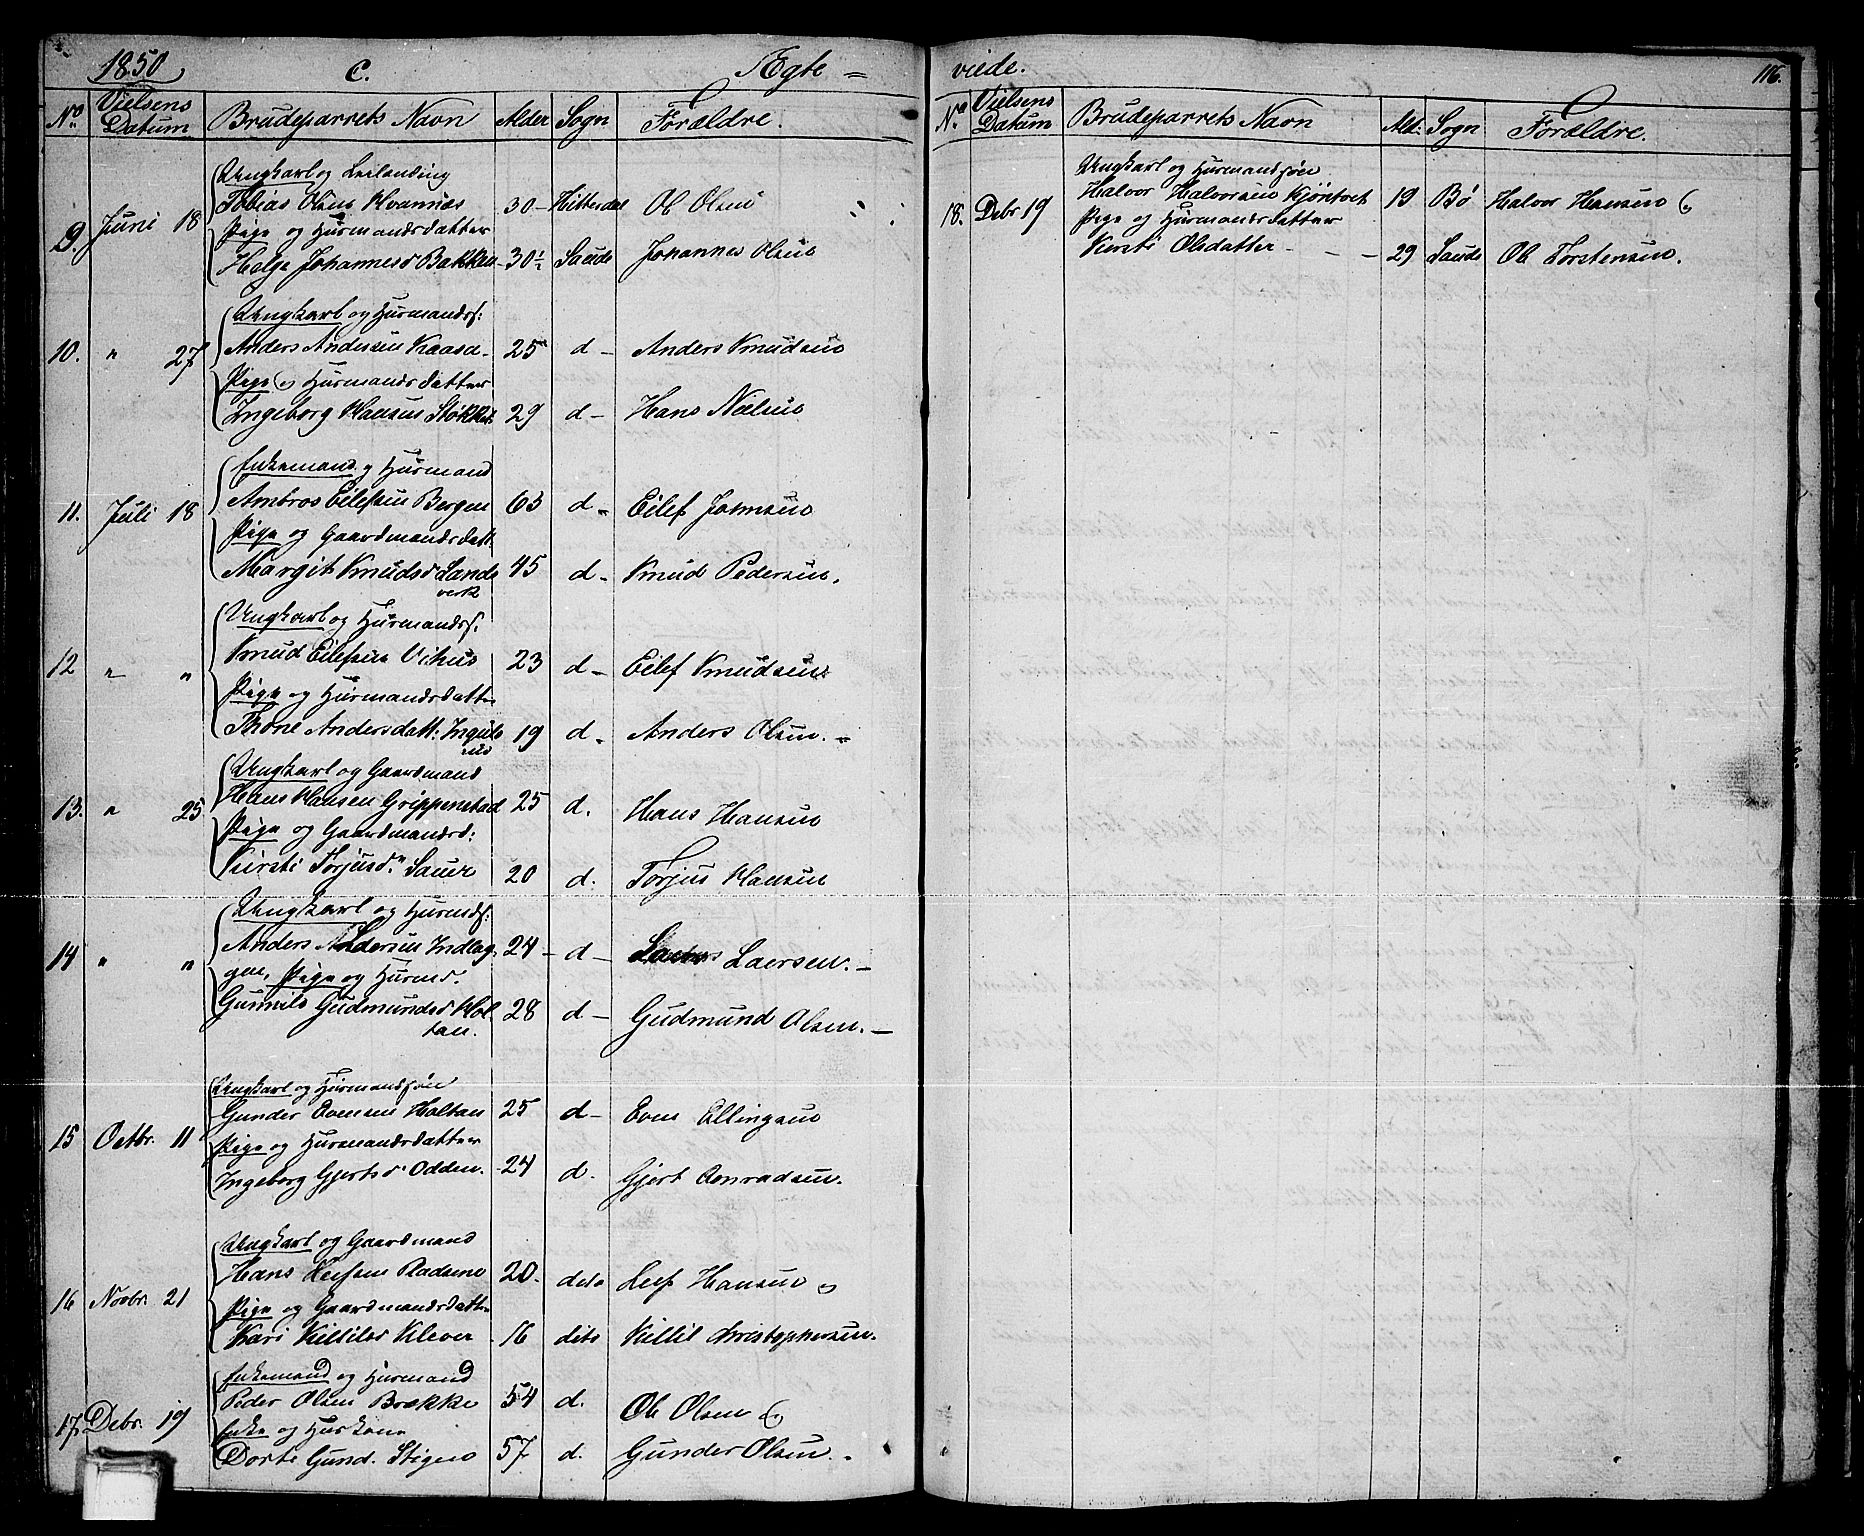 1850 C. Ægte =
No Vielsens Datum Brudeparrets Navn Alder Sogn Forældre.
Ungkarl og Leilænding
Tobias Olsen Kvannæs 30 - Hitterdal Ole Olsen
9. Juni 18 Pige og Huusmandsdatter
Helge Johannesd Bakken 30½ Saude Johannes Olsen
Ungkarl og Huusmands.
10. " 27 Anders Andersen Kaasa - 25 d - Anders Knudsen
Pige og Huusmandsdatter
Ingeborg Hansen 29 d - Hans Nielsen
Enkemand og Huusmand
Ambros Eilefsen Bergen 63 d - Eilef Johnsen
11. Juli 18 Pige og Gaardmandsdatt.
Margit Knudsd Lands 45 d - Knud Pedersen.
verk
Ungkarl og Huusmands.
12 " " Knud Eilefsen Vihus 23 d - Eilef Knudsen
Pige og Huusmandsdatter
Thone Andersdatt: Inguls 19 d - Anders Olsen. -
rud
Ungkarl og Gaardmand
13. " 25 Hans Hansen Grippenstad 25 d. Hans Hansen
Pige og Gaardmandsd:
Kirsti Torjusdr Saure 20 d. Torjus Hansen
Ungkarl og Huusmds:
14 " " Anders Andersen Indlag 24 - d - Laersen. -
gen, Pige og Huusmd.
Gunnild Gudmundsd Hol 28 d - Gudmund Olsen. -
tan.
Ungkarl og Huusmandssøn
Gunder Evensen Holtan 25 d - Even Ellingsen
15 Octbr. 11 Pige og Huusmandsdatter
Ingeborg Gjertsd Odden. 24 d. Gjert Conradsen.
Ungkarl og Gaardmand
Hans Leifsen 20. dito Leif Hansen
16 Novbr. 21 Pige og Gaardmandsdatter
Kari Kittilsd Klever 16 dito Kittil Christophersen.
Enkemand og Huusmand
Peder Olsen Brække 54 d. Ole Olsen
17. Debr. 19 Enke og Huuskone
Dorte Gund. Stigen 57 d. Gunder Olsen. -
viede. 116.
No Vielsens Datum Brudeparrets Navn Ald: Sogn Forældre.
Ungkarl og Huusmandssøn
18. Debr 19 Halvor Halvorsen Kjøntvet 19 Bø Halvor Hansen
Pige og Huusmandsdatter
Kirsti Olsdatter - - - 29 Saude Ole Torstensen.